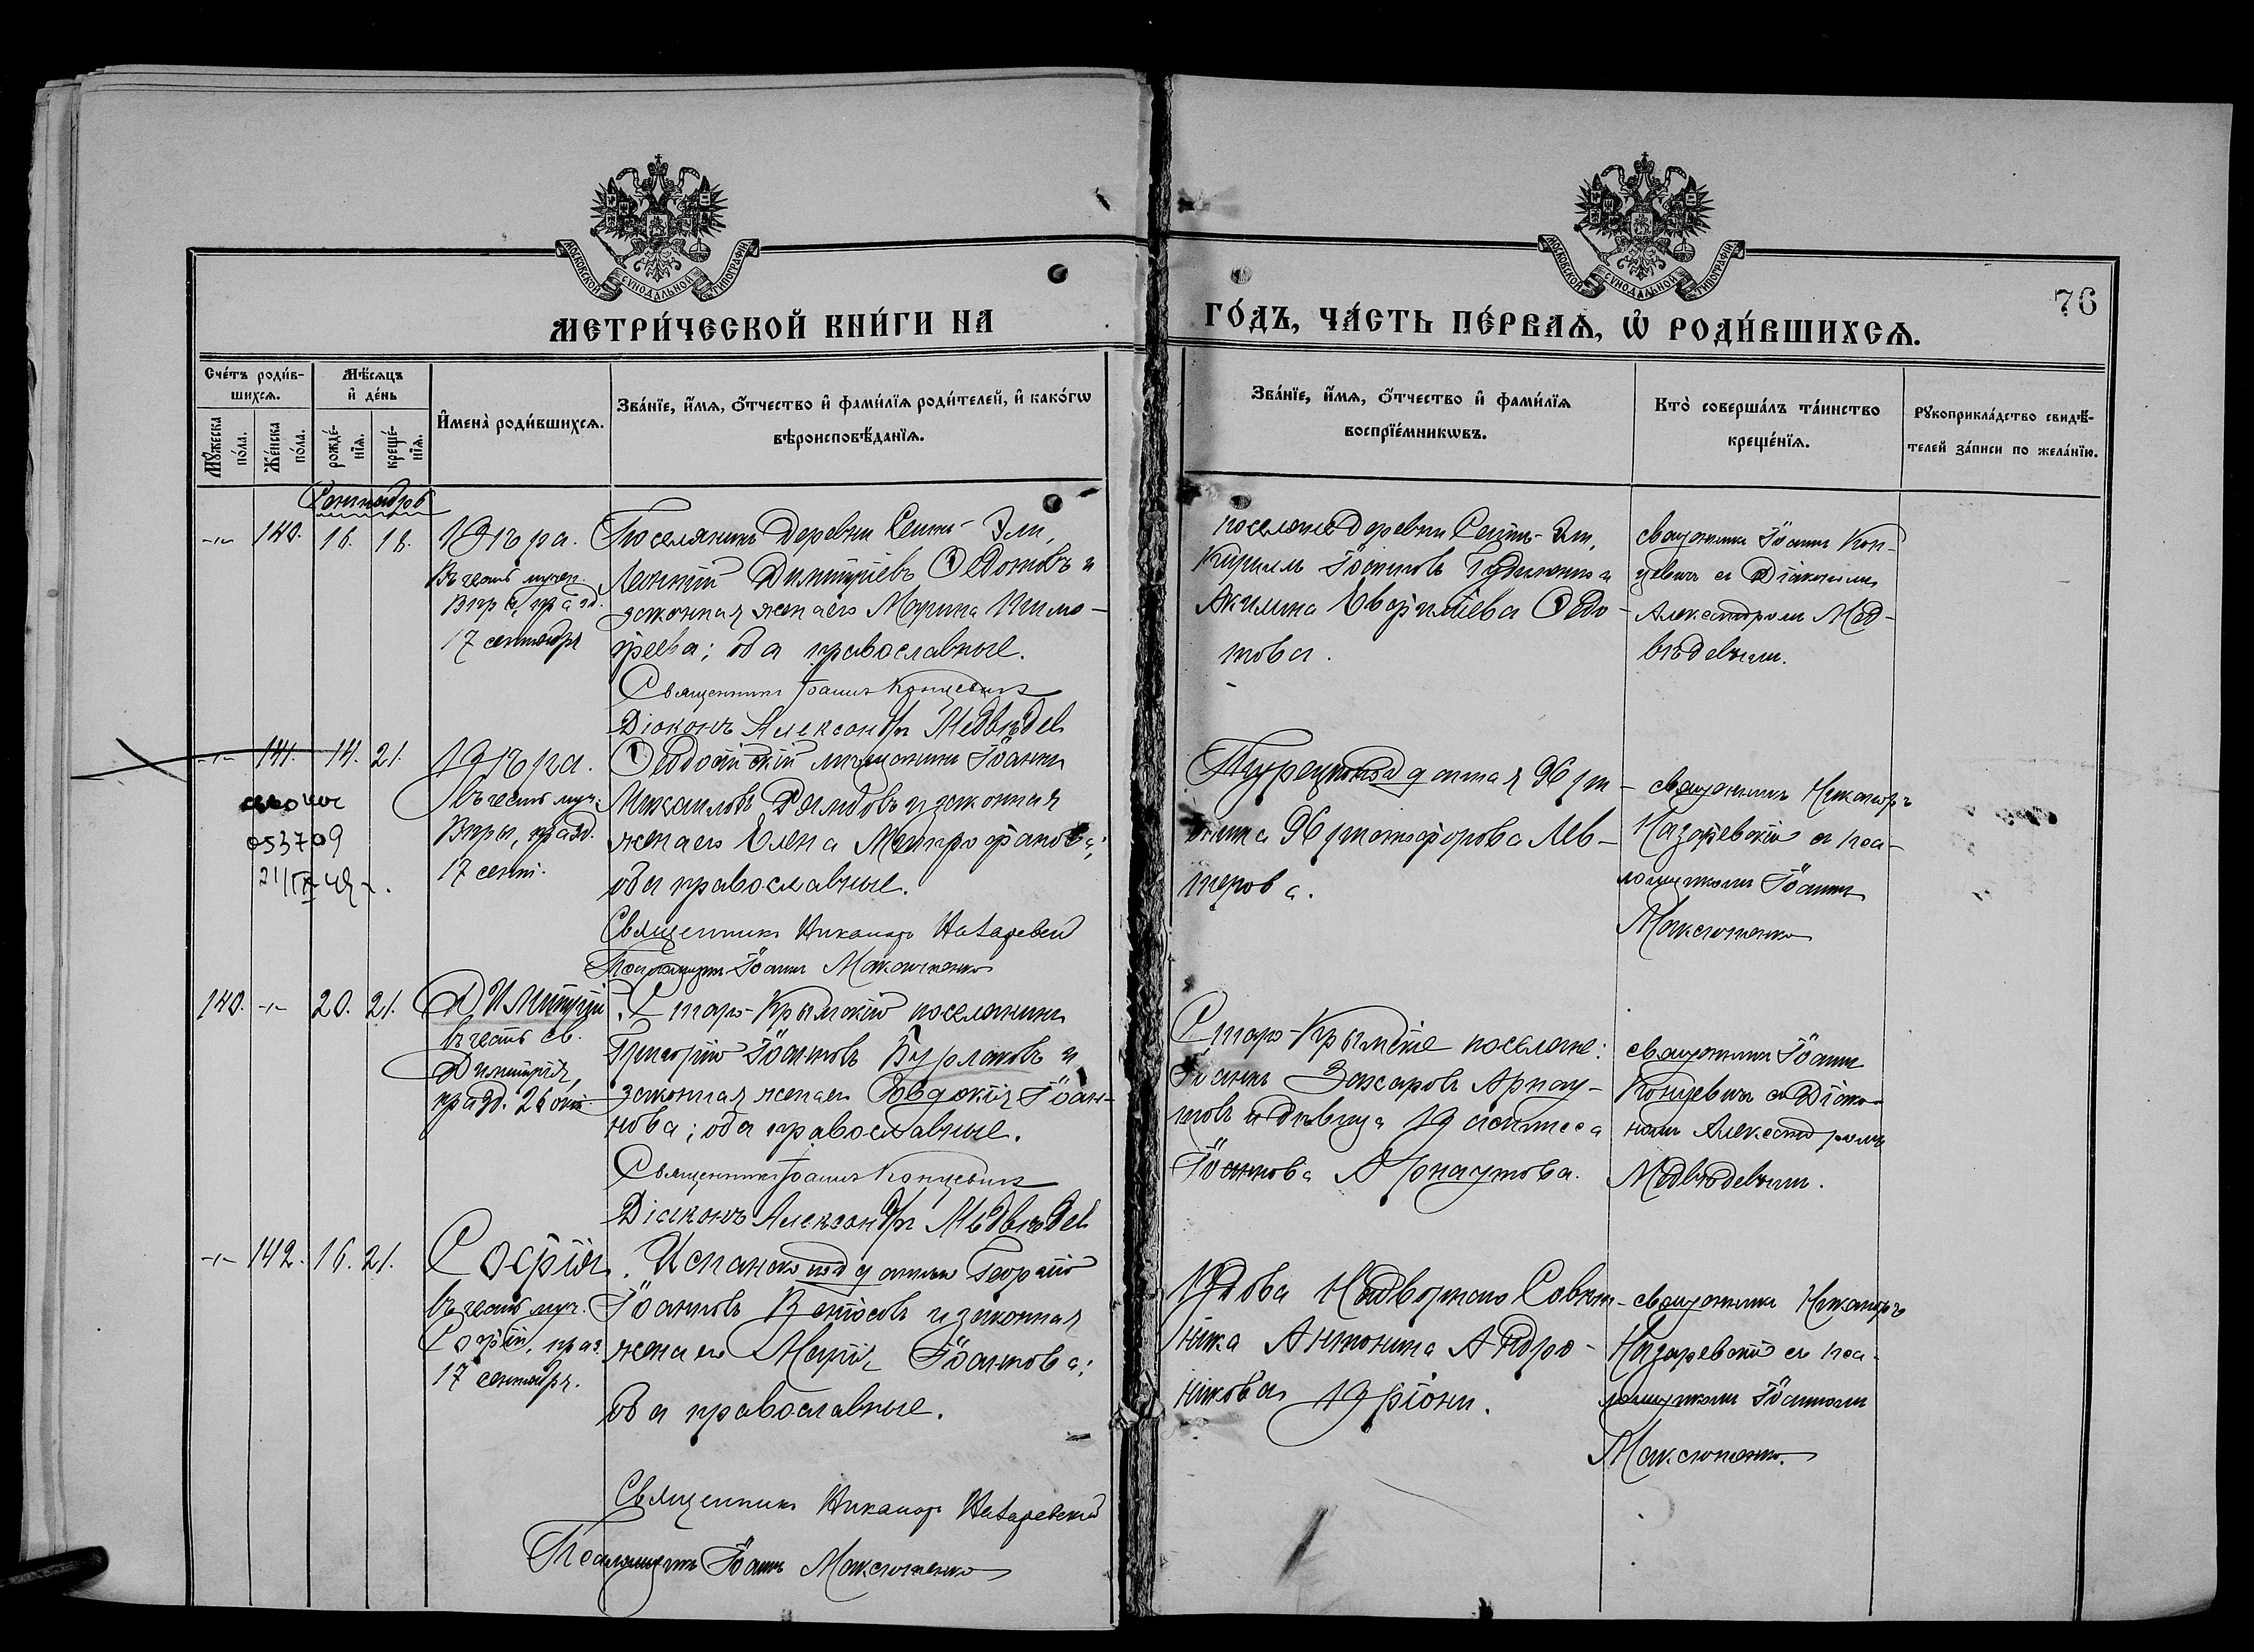 МОСКОВСКОЙ СѴНОДАЛЬНОЙ ТИПОГРАФІИ
МОСКОВСКОЙ СѴНОДАЛЬНОЙ ТИПОГРАФІИ
76
МЕТРИ́ЧЕСКОЙ КНИ́ГИ НА
ГО́ДЪ, ЧА́СТЬ ПЕ́РВАѦ, Ѡ҆ РОДИ́ВШИХСѦ.
Сче́тъ роди́в-
шихсѧ.
Мꙋ́жеска по́ла.
Же́нска по́ла.
Мѣ́сѧцъ
и҆ де́нь
рожде́-
нїѧ.
креще́-
нїѧ.
И҆мена̀ роди́вшихсѧ.
Зва́нїе, и҆́мѧ, ѻ҆́тчество и҆ фами́лїѧ роди́телей, и҆ како́гѡ
вѣроисповѣ́данїѧ.
Зва́нїе, и҆́мѧ, ѻ҆́тчество и҆ фами́лїѧ
воспрїе́мникѡвъ.
Кто̀ соверша́лъ та́инство
креще́нїѧ.
Рꙋкоприкла́дство свидѣ́-
телей за́писи по жела́нїю.
Сентябрь
140. 16. 18.
Вѣра.
Въ честь мучен.
Вѣры, празд.
17 сентября
Поселянинъ деревни Сеитъ-Эли,
Леонтій Димитріевъ Ѳедотовъ и
законная жена его Марина Тимо-
ѳеева; оба православные.
Священникъ Іоаннъ Концевичъ
Діаконъ Александръ Медвѣдев
поселяне деревни Сеитъ-Эли,
Кириллъ Іоанновъ и
Акилина Евфиміева Ѳедо-
това.
священникъ Іоаннъ Кон-
цевичъ съ діакономъ
Александромъ Мед-
вѣдевымъ.
141. 14. 21.
053709
Вѣра.
въ честь муч.
Вѣры, празд.
17 сент.
Ѳеодосійскій мѣщанинъ Іоаннъ
Михаиловъ и законная
жена его Елена Митрофанова;
оба православные.
Священникъ Никаноръ Назаревскій
Псаломщикъ Іоаннъ Максютенко
Турецкоподданная
Лев-
терова.
священникъ Никаноръ
Назаревскій съ пса-
ломщикомъ Іоанномъ
Максютенко
140. 20. 21.
Димитрій.
въ честь св.
Димитрія,
празд. 26 окт.
Старо-Крымскій поселянинъ
Григорій Іоанновъ Бурлаковъ и
законная жена его Евдокія Іоан-
нова; оба православные.
Священникъ Іоаннъ Концевичъ
Діаконъ Александръ Медвѣдев
Старо-Крымскіе поселяне:
Іоаннъ Захаровъ Арнау-
товъ и дѣвица
Іоаннова Арнаутова.
священникъ Іоаннъ
Концевичъ съ діако-
номъ Александромъ
Медвѣдевымъ.
142. 16. 21.
Софія.
въ честь муч.
Софіи, праз.
17 сентября.
Испанскоподданный Георгій
Іоанновъ и законная
жена его Марія Іоаннова;
оба православные.
Священникъ Никаноръ Назаревскій
Псаломщикъ Іоаннъ Максютенко
Вдова Надворнаго Совѣт-
ника Антонина Андро-
никова
священникъ Никаноръ
Назаревскій съ пса-
ломщикомъ Іоанномъ
Максютенко.